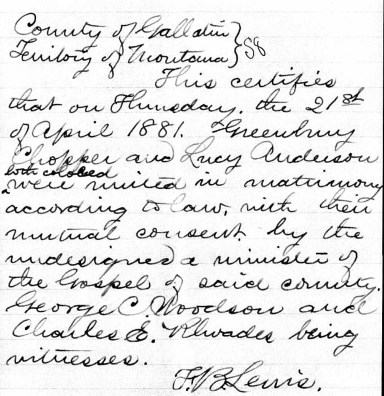 County of Gallatin } SS
Territory of Montana }
This certifies
that on Thursday, the 21st
of April 1881. Greenbury
Chopper and Lucy Anderson
both colored
were united in matrimony
according to law, with their
mutual consent by the
undesigned a minister of
the Gospel of said county.
George C. Woodson and
Charles E. Rhoades being
witnesses.
F. B. Lewis.